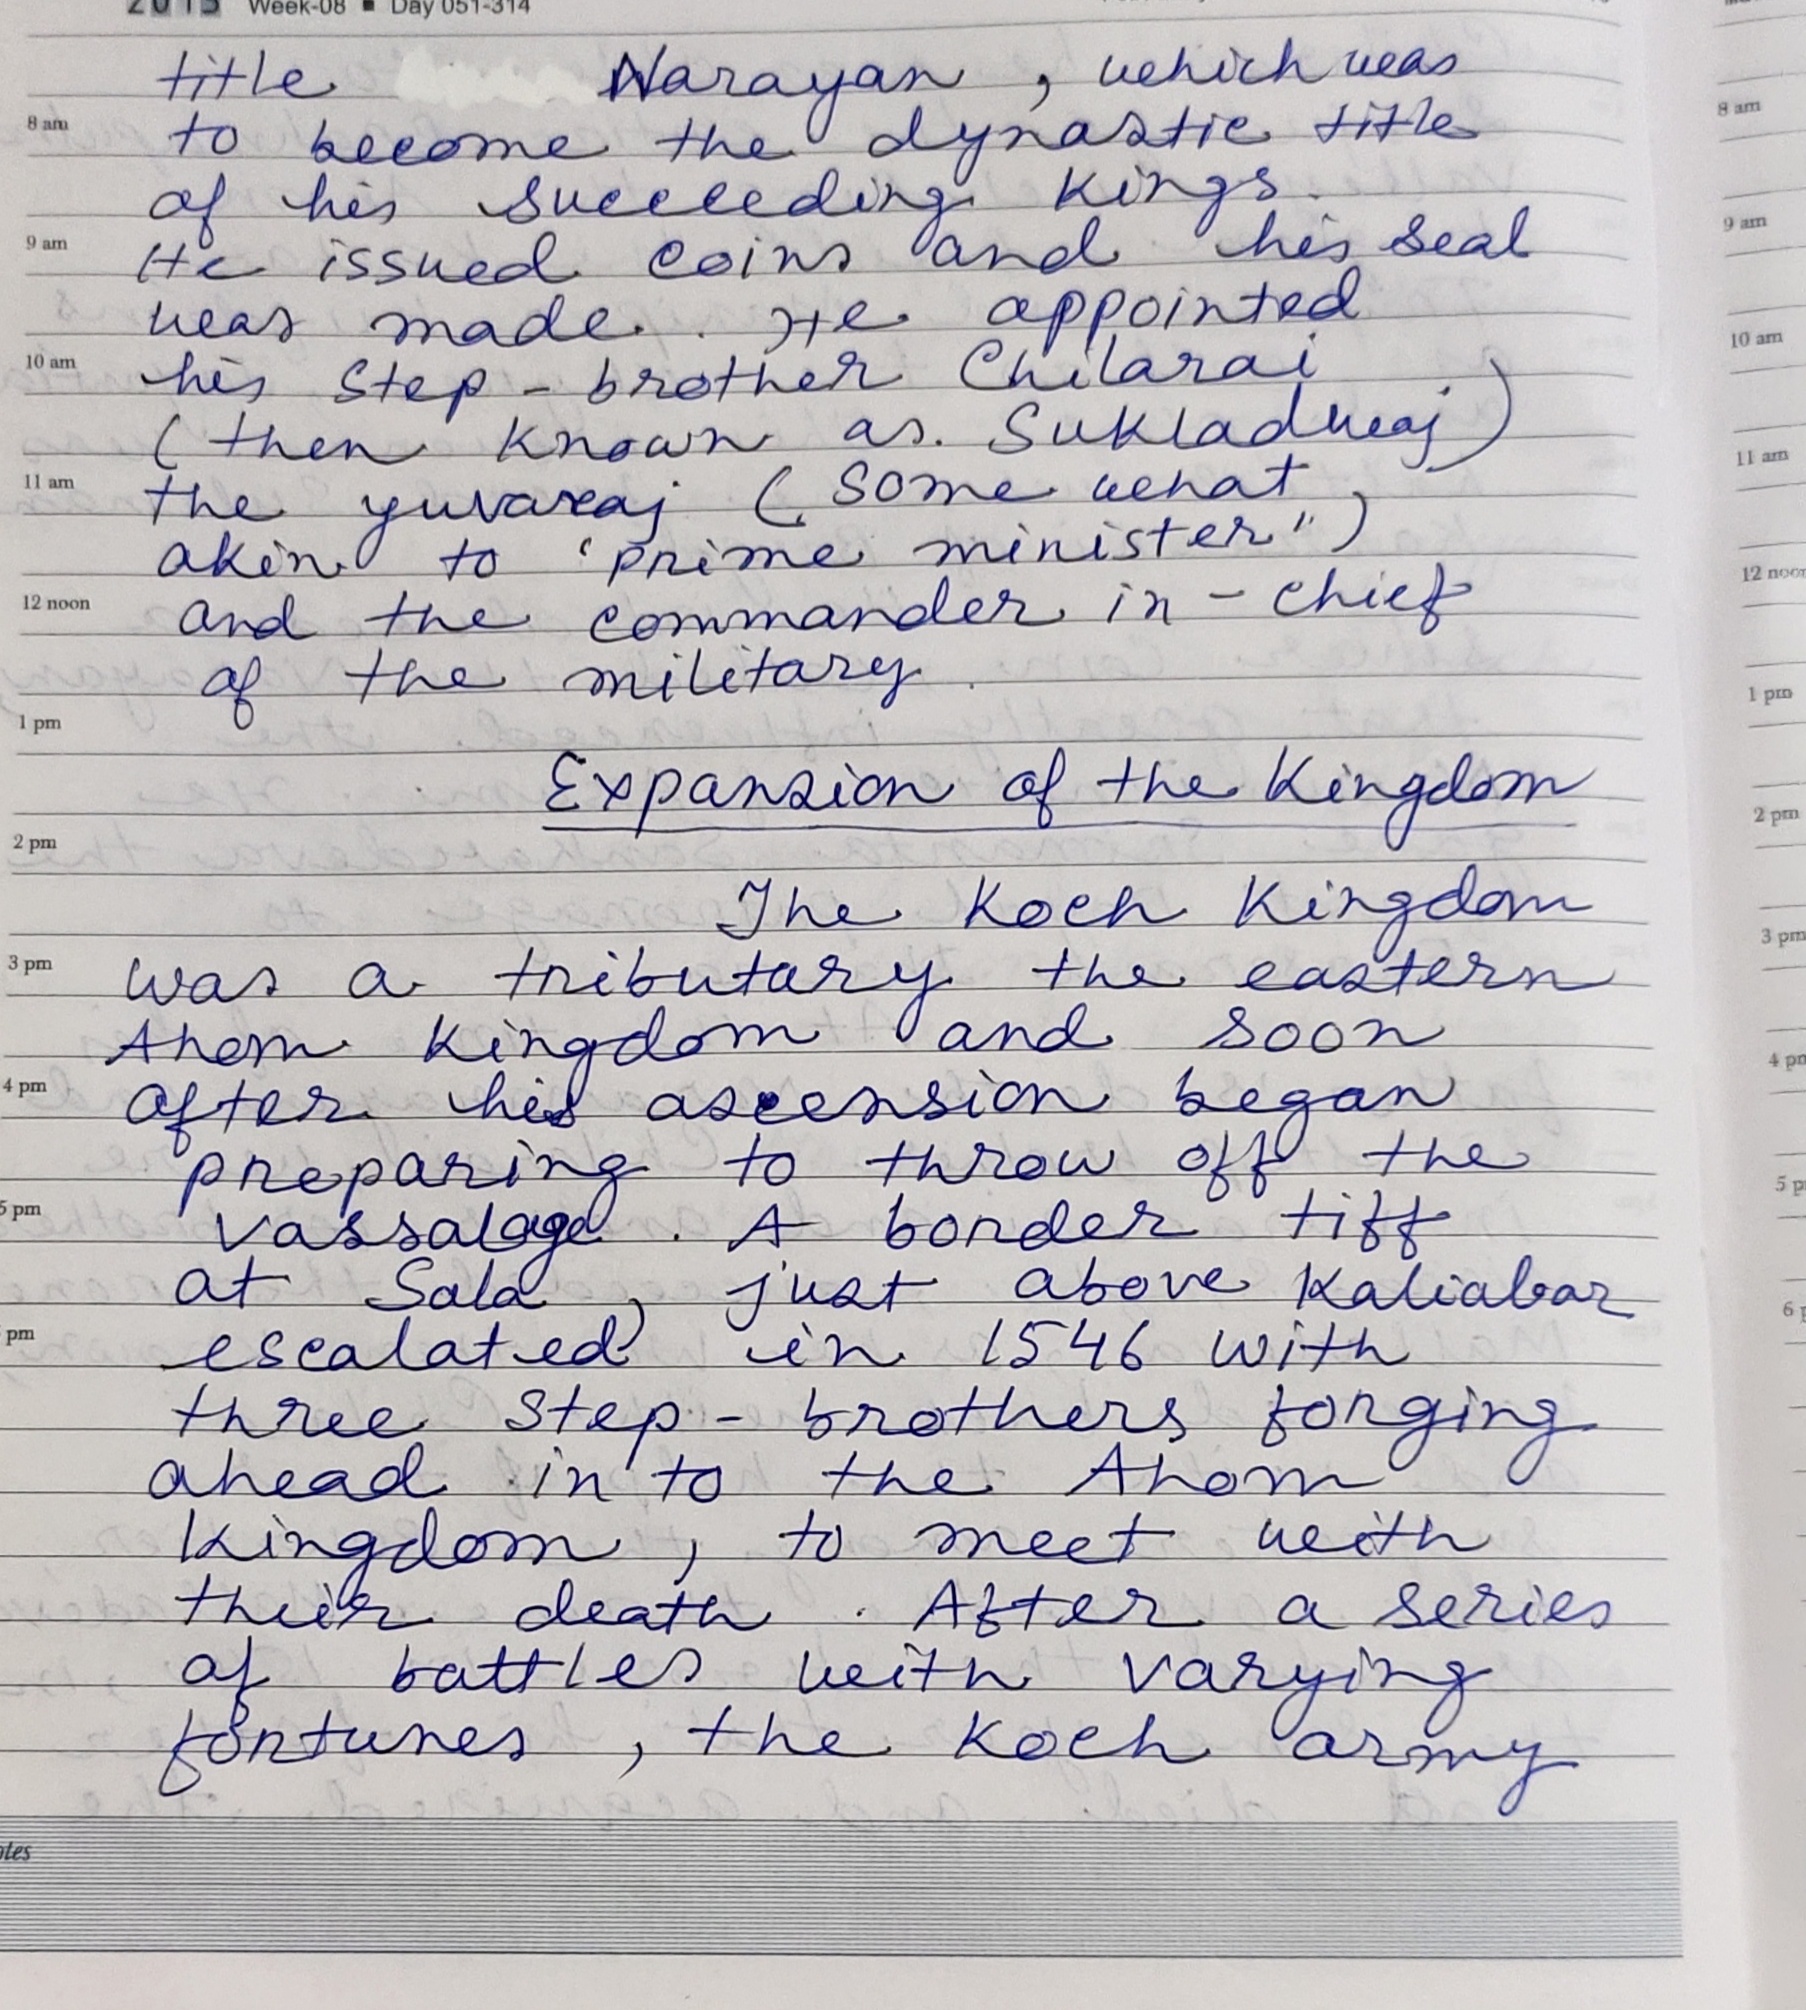 2015 Week-08 ■ Day 051-314
title Narayan, which was
8 am
to become the dynastic title
of his succeeding kings.
9 am
He issued coins and his seal
was made. He appointed
10 am
his step-brother Chilarai
(then known as. Sukladwaj)
11 am
the yuvaraj (some what,
akin to 'prime minister")
12 noon
and the commander in-chief
of the military.
1 pm
Expansion of the Kingdom
2 pm
The Koch Kingdom
3 pm
was a tributary the eastern
Ahom Kingdom and soon
4 pm
after his ascension began
preparing to throw off the
5 pm
vassalage. A border tiff
at Sala, just above Kaliabar
pm
escalated in 1546 with
three step-brothers forging
ahead in to the Ahom
kingdom, to meet with
their death. After a series
of battles with varying
fortunes, the Koch army
otes
8 am
9 am
10 am
11 am
12 noon
1 pm
2 pm
3 pm
4 pm
5 p
6 p